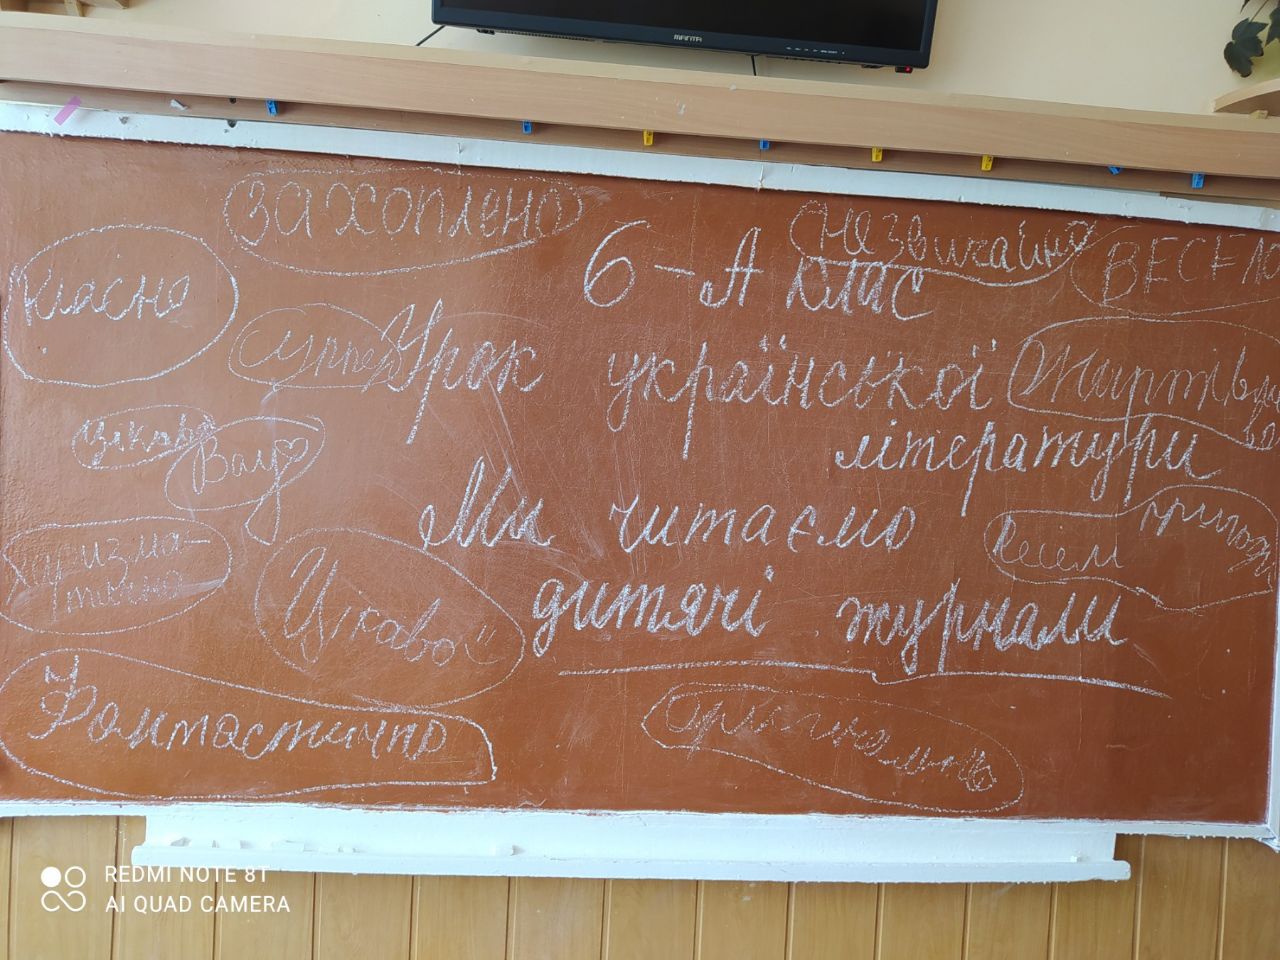 MANTA
захоплено
6-А клас
Незвичайно
ВЕСЕЛО
класно
супер
Урок української
літератури
Жартівливо
цікаво
Вау
Ми читаємо
дитячі журнали
харизма-
тично
Цікаво
пригоди
Фантастично
Оригінально
REDMI NOTE 8T
AI QUAD CAMERA